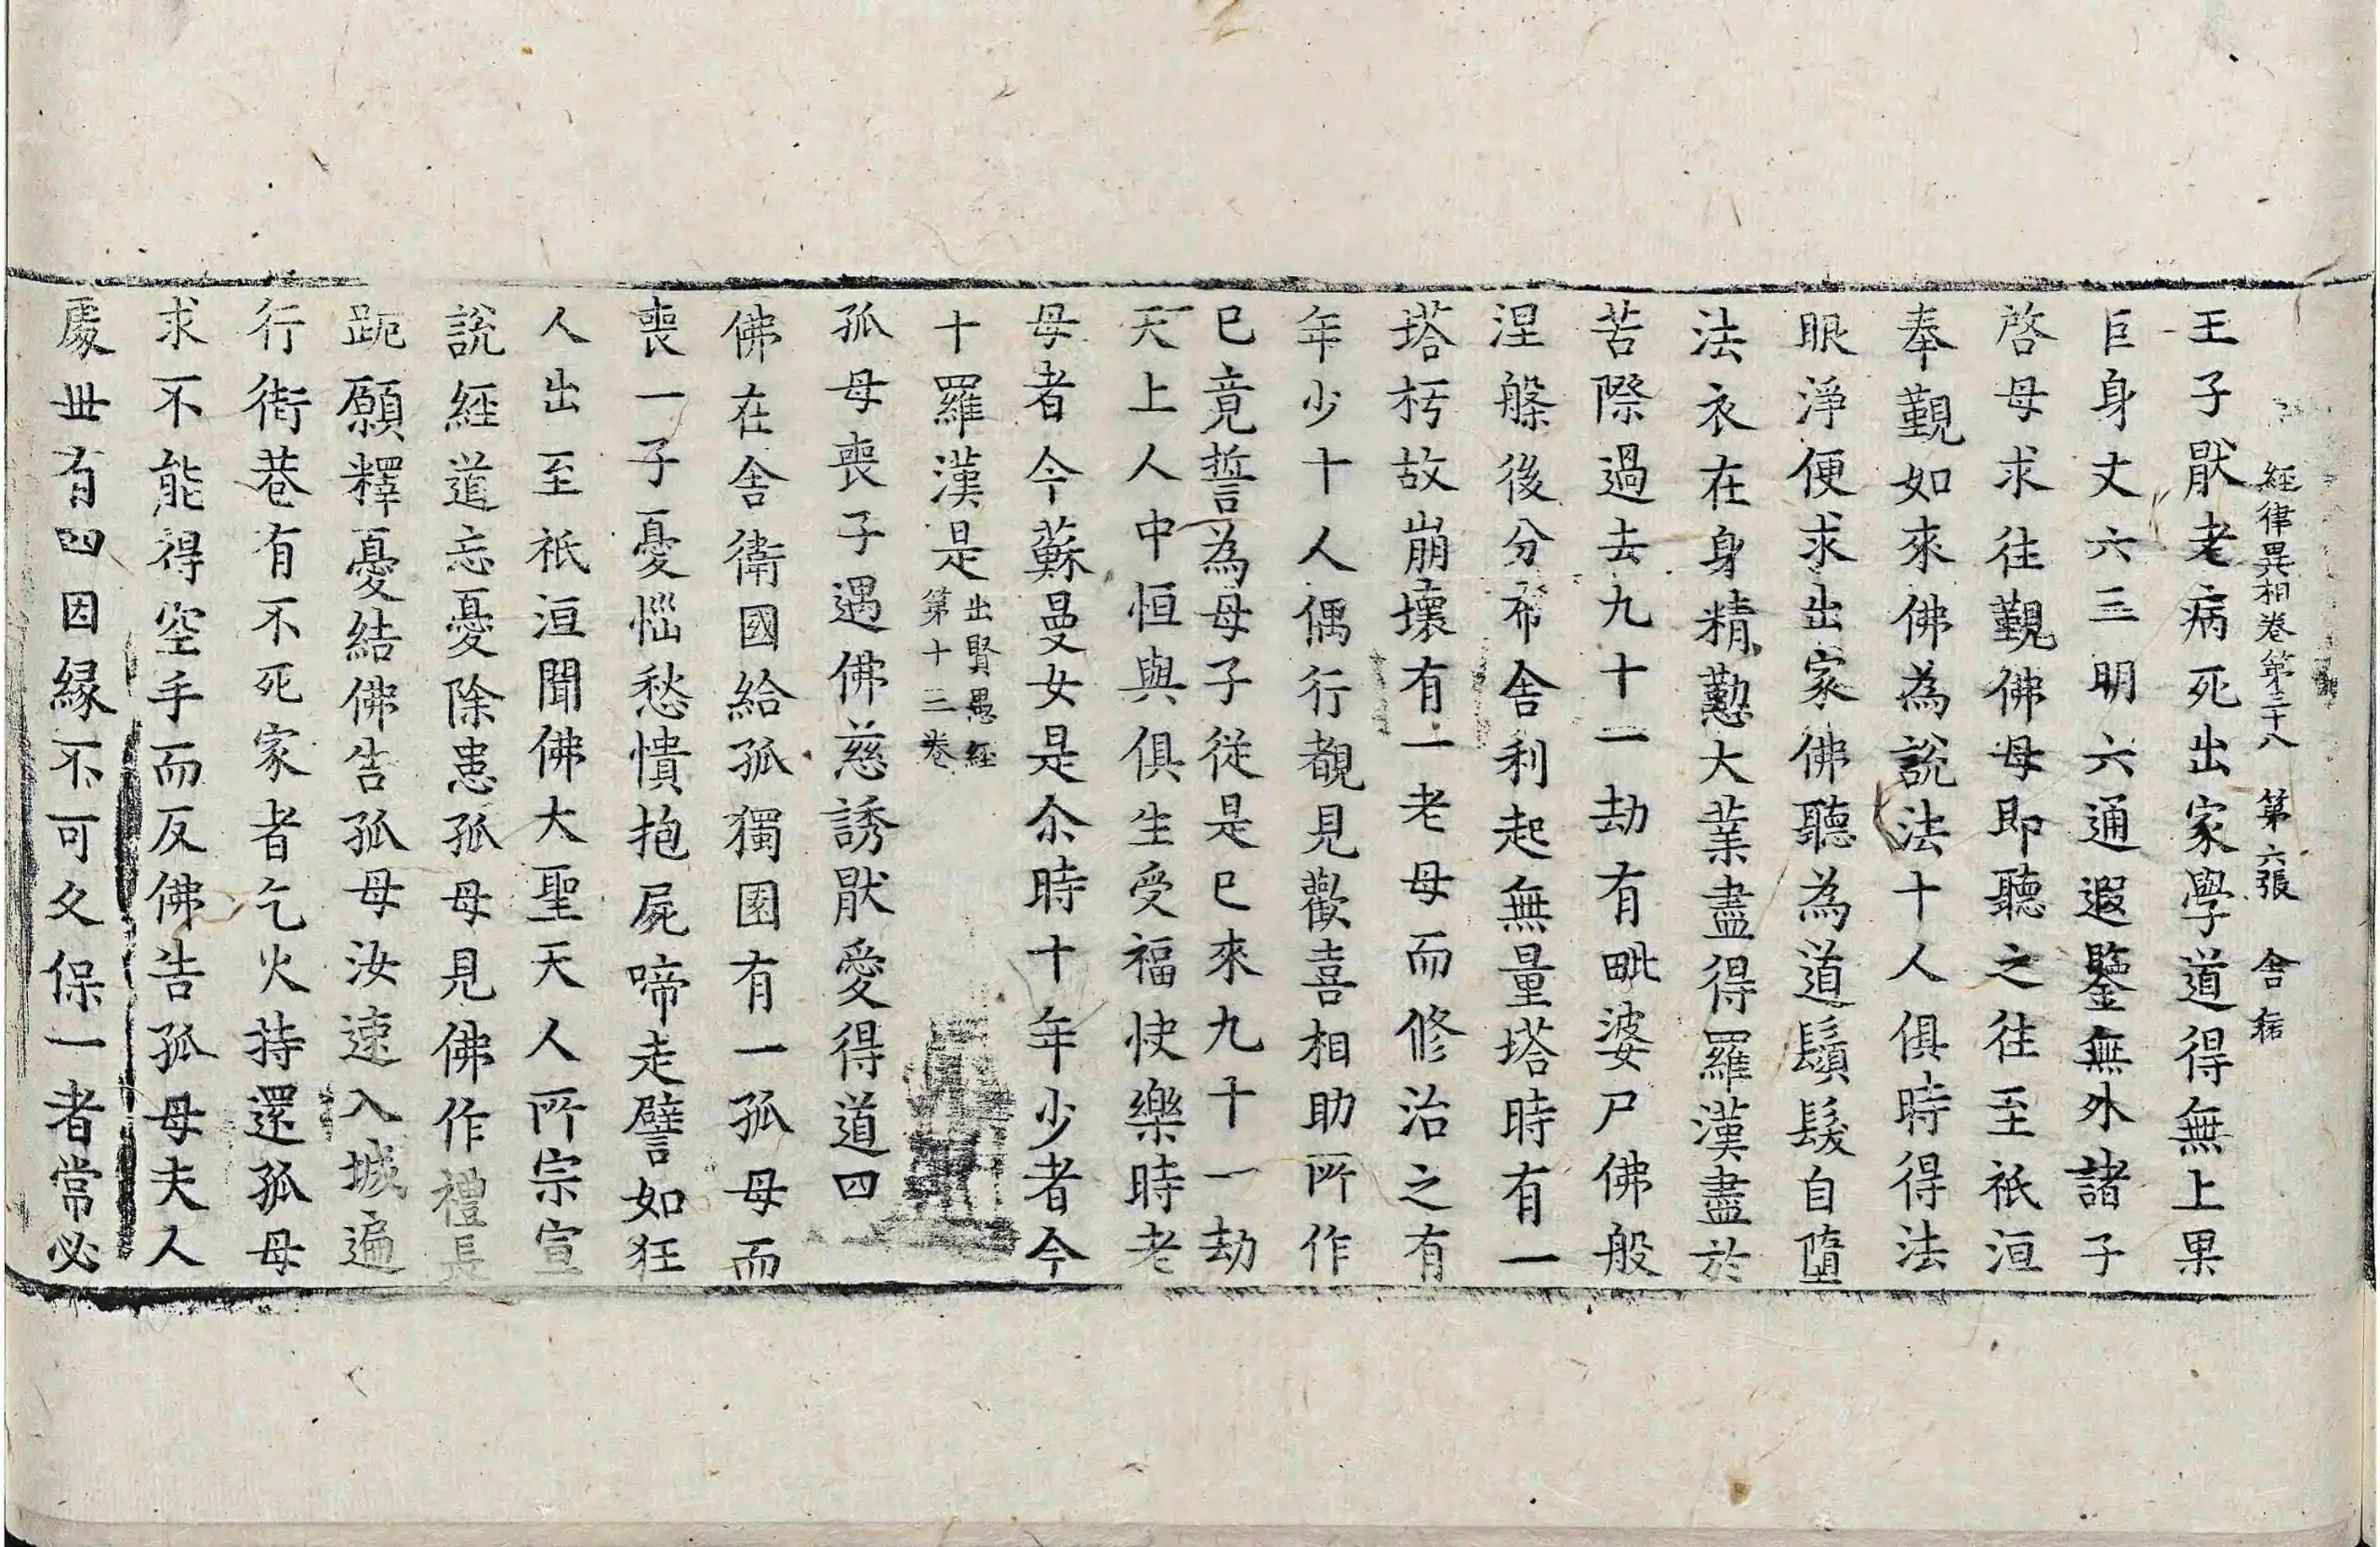 經律異相卷第三十八 第六張 舍
王子猒老病死出家學道得無上果
巨身丈六三明六通遐鑒無外諸子
啓母求往覲佛母即聽之往至祇洹
奉覲如來佛為說法十人俱時得法
眼淨便求出家佛聽為道鬚髮自墮
法衣在身精懃大業盡得羅漢盡於
苦際過去九十一劫有毗婆尸佛般
涅槃後分布舍利起無量塔時有一
塔朽故崩壞有一老母而修治之有
年少十人偶行覩見歡喜相助所作
已竟誓為母子從是已來九十一劫
天上人中恒與俱生受福快樂時老
母者今蘇曼女是尒時十年少者今
十羅漢是出賢愚經第十三卷
孤母喪子遇佛慈誘猒愛得道四
佛在舍衛國給孤獨園有一孤母而
喪一子憂惱愁憒抱屍啼走譬如狂
人出至祇洹聞佛大聖天人所宗宣
說經道忘憂除患孤母見佛作禮長
跪願釋憂結佛告孤母汝速入城遍
行街巷有不死家者乞火持還孤母
求不能得空手而反佛告孤母夫人
處世有四因緣不可久保一者常必